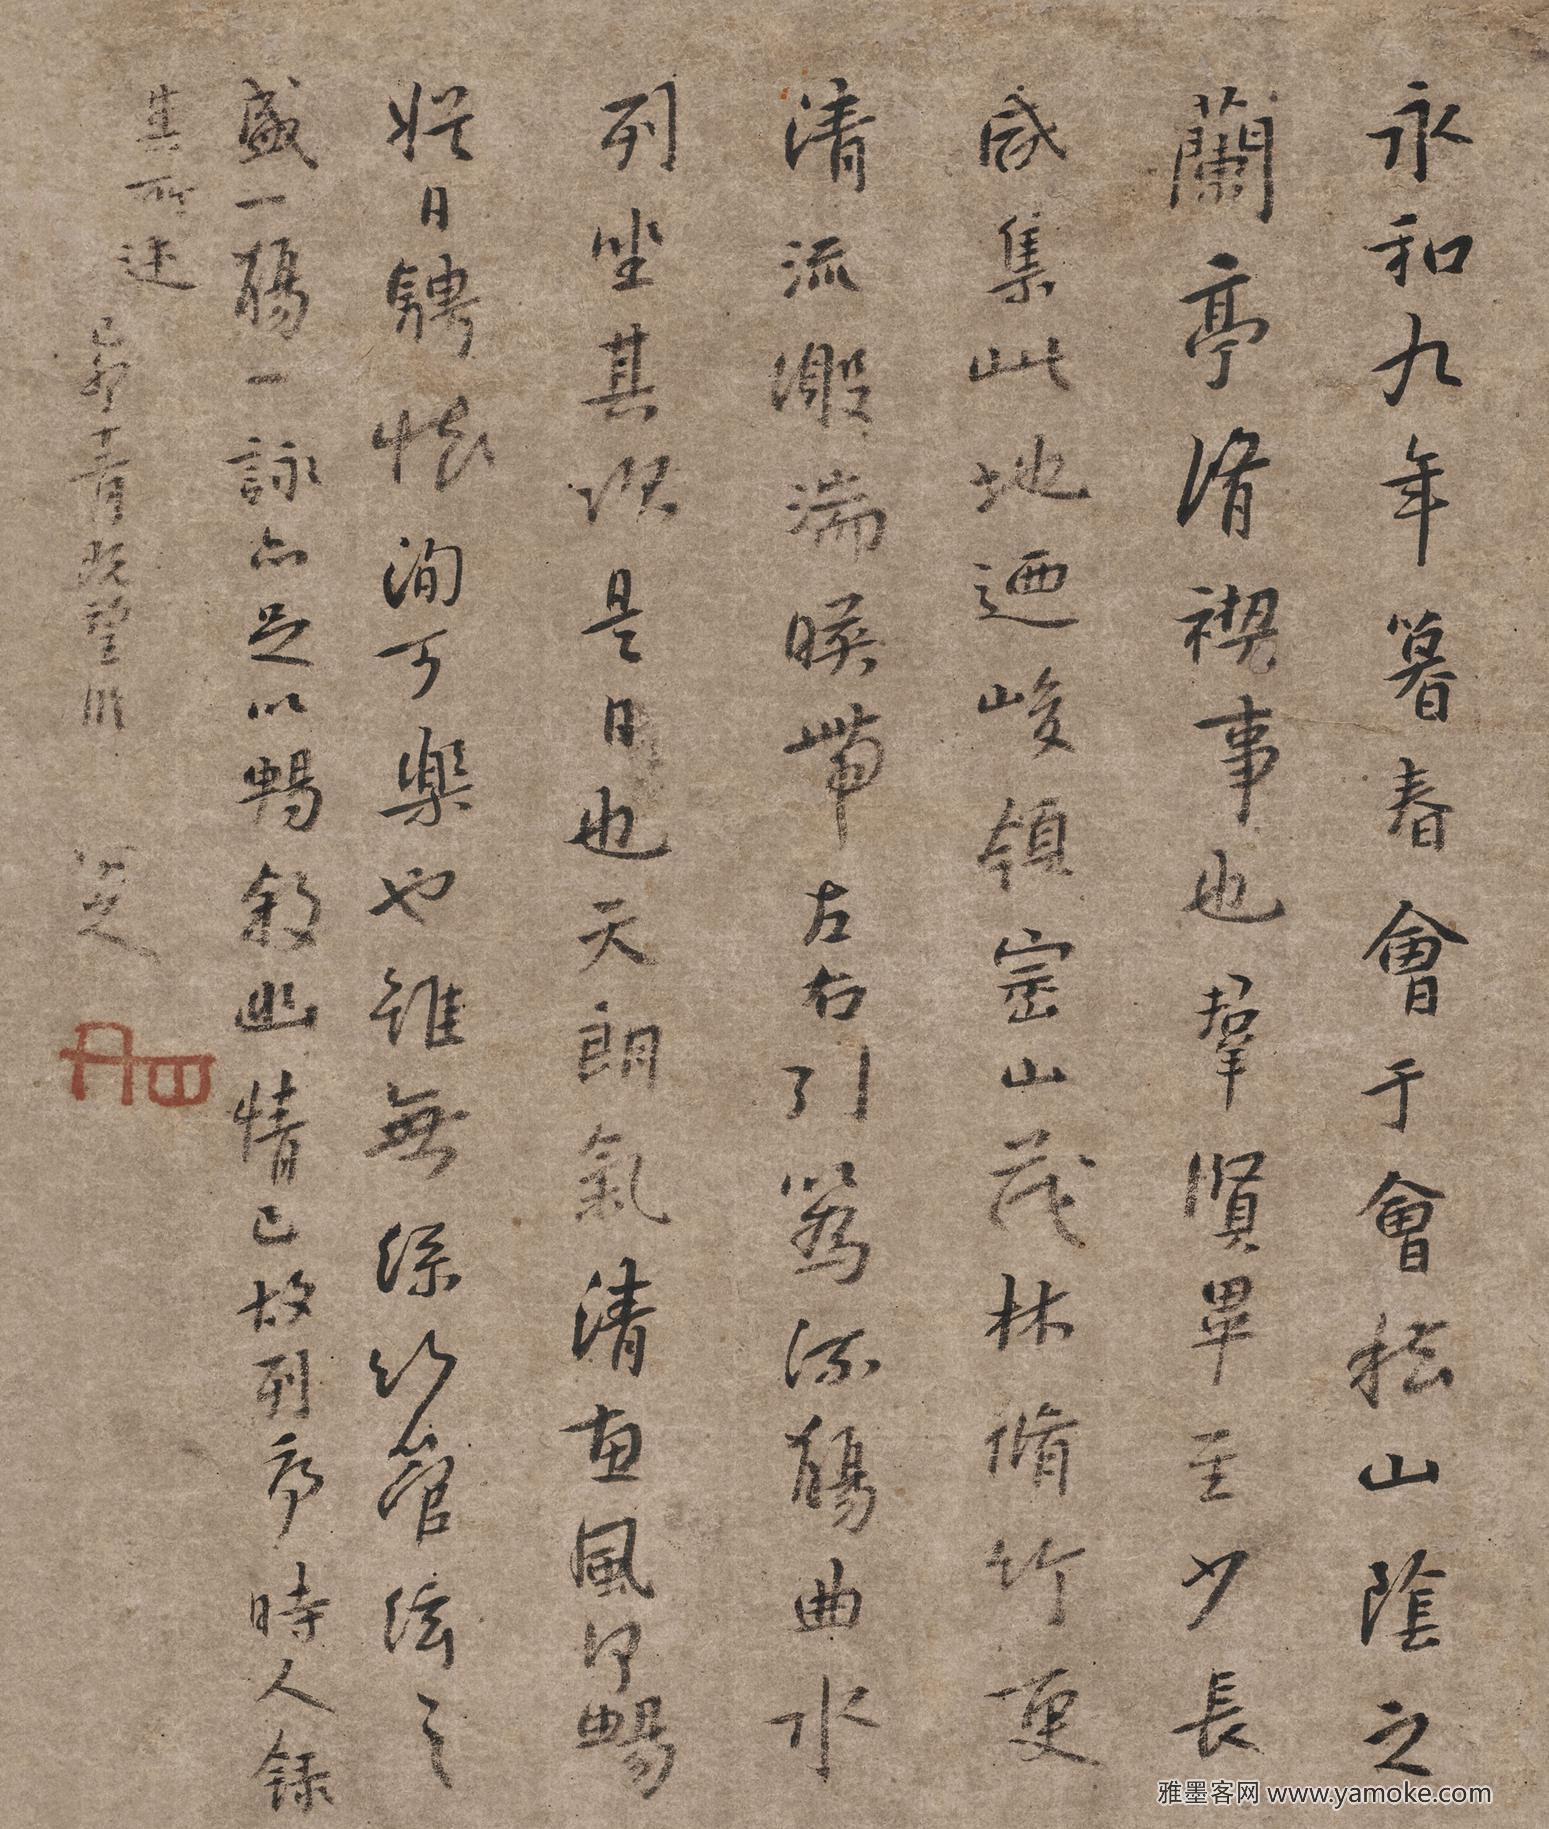 永和九年暮春會于會稽山陰之
蘭亭脩禊事也羣賢畢至少長
咸集此地迺峻領崇山茂林脩竹更
清流激湍暎帶左右引以為流觴曲水
列坐其次是日也天朗氣清惠風和暢
娛日騁懷洵可樂也雖無絲竹管絃之
盛一觴一詠亦足以暢敘幽情已故列序時人錄
其所述
己卯既望臨 八大山人
雅墨客网 www.yamoke.com